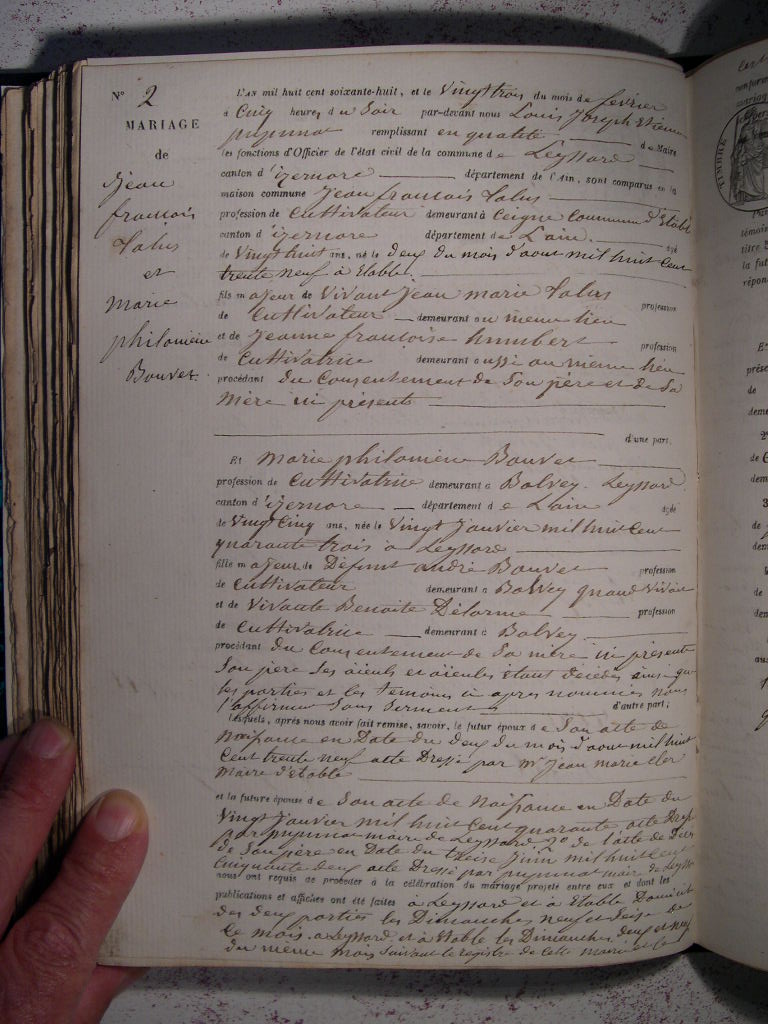 N° 2
MARIAGE
de
Jean
francois
Lalus
et
Marie
philomène
Bouvet
L'AN mil huit cent soixante-huit, et le Vingt trois du mois de fevrier
à Cinq heures du Soir par-devant nous Louis Joseph Etienne
pupunat remplissant en qualité de Maire
les fonctions d'Officier de l'état civil de la commune de Leyssard
canton d'izernore département de l'Ain, sont comparus en la
maison commune Jean francois Lalus
profession de Cultivateur demeurant à Ceigne Commune d'Etable
canton d'izernore département de L'ain âgé
de Vingt huit ans, né le deux du mois d'aout mil huit Cent
trente neuf à Etable.
fils majeur de Vivant Jean marie Lalus profession
de Cultivateur demeurant au meme lieu
et de Jeanne francoise humbert profession
de Cultivatrice demeurant aussi au meme lieu
procédant du Consentement de Son père et de Sa
Mère ici présents
d'une part.
Et marie philomène Bouvet
profession de Cultivatrice demeurant à Bolvey. Leyssard
canton d'izernore département de L'ain âgée
de Vingt Cinq ans, née le Vingt Janvier mil huit Cent
quarante trois à Leyssard
fille majeur de Défunt andré Bouvet profession
de Cultivateur demeurant à Bolvey quand Vivait
et de Vivante Benoite Delorme profession
de Cultivatrice demeurant à Bolvey
procédant du Consentement de Sa mère ici présente
Son père Ses aïeuls et aïeules étant décédés ainsi que
les parties et les témoins ci après nommés nous
l'affirment Sous Serment d'autre part;
Lesquels, après nous avoir fait remise, savoir, le futur époux de Son acte de
Naissance en Date du deux du mois d'aout mil huit
Cent trente neuf acte Dressé par Mr Jean marie
Maire d'Etable
et la future épouse de Son acte de Naissance en Date du
Vingt Janvier mil huit Cent quarante, acte Dressé
par pupunat maire de Leyssard 2° de l'acte de Décès
de Son père en Date du treise Juin mil huit Cent
Cinquante deux acte Dressé par pupunat maire de Leyssard
nous ont requis de procéder à la célébration du mariage projeté entre eux et dont les
publications et affiches ont été faites à Leyssard et à Etable Domicile
des deux parties les Dimanches neuf et Seise de
Ce mois. a Leyssard et à Etable les Dimanches deux et neuf
du même mois Suivant le registre de Cette mairie et le
TIMBRE